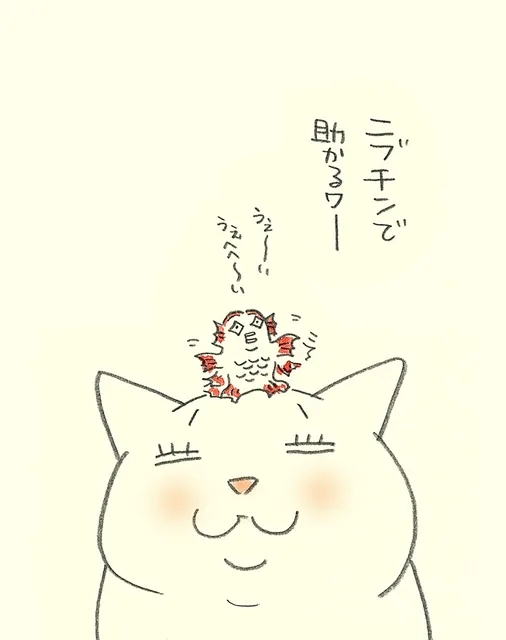 ニブチンで
助かるワー
うぇ〜い
うぇへへ〜い